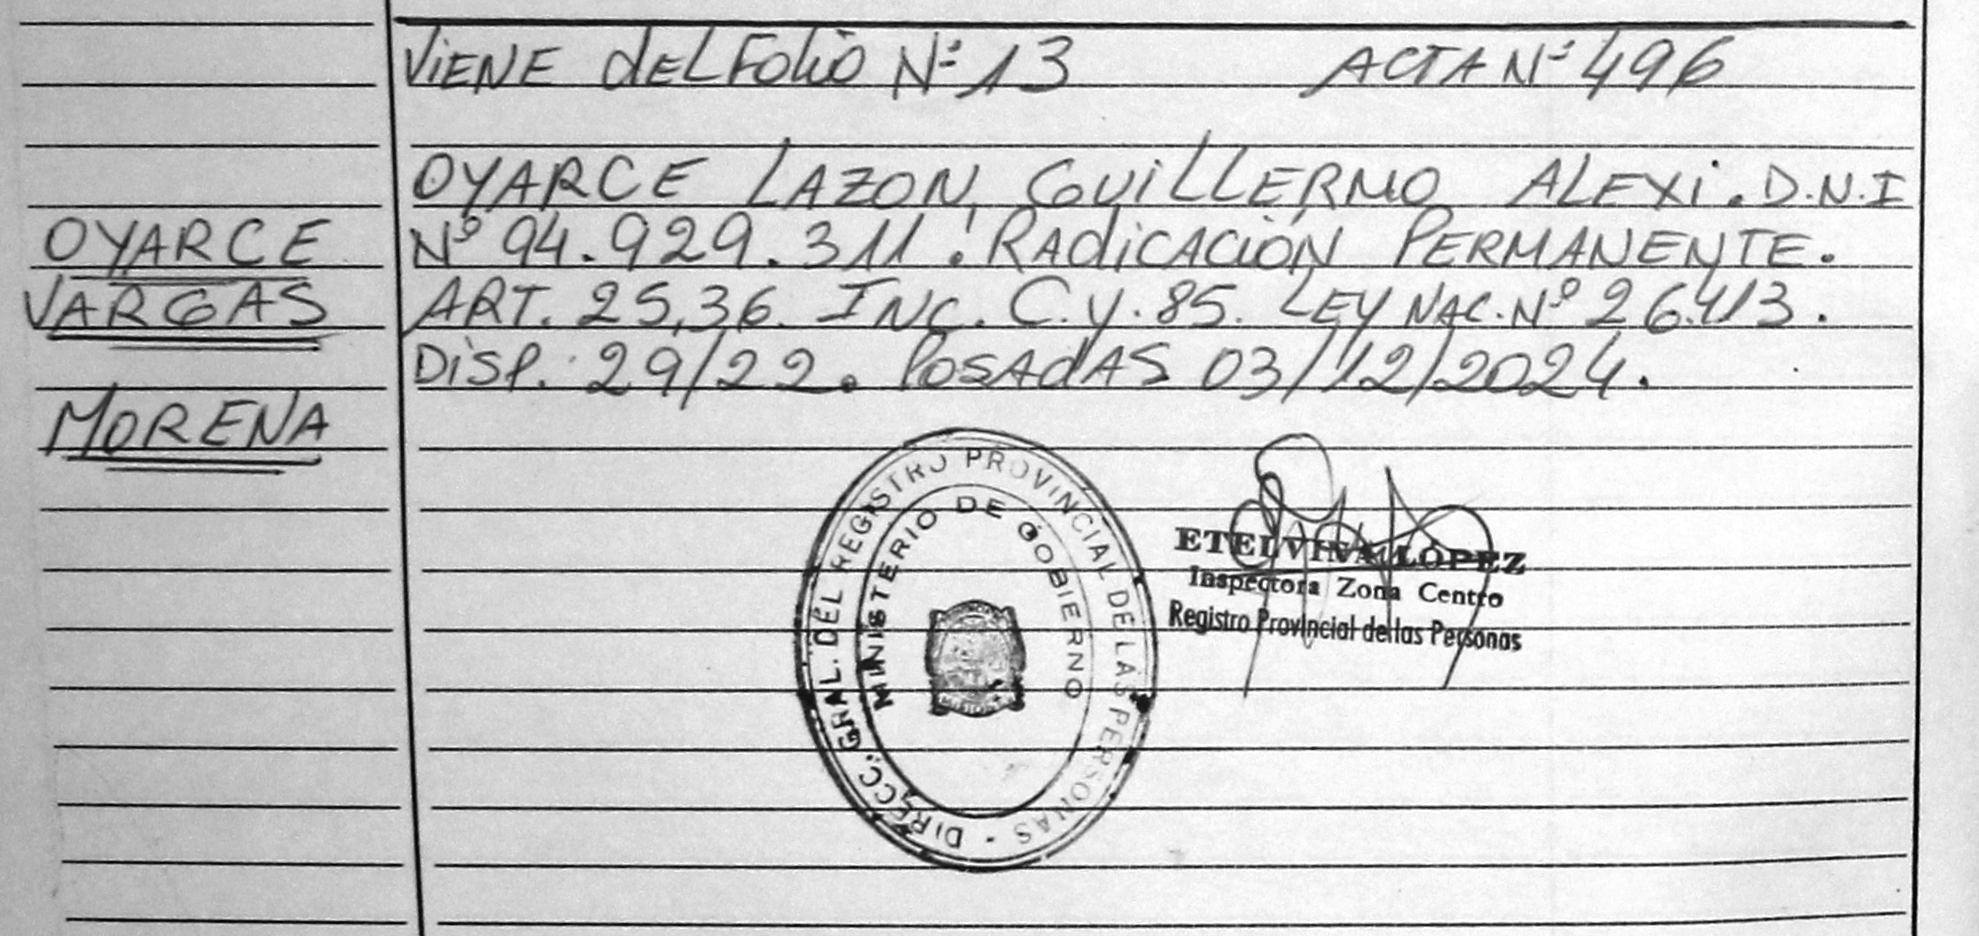 VIENE del FOLIO Nº 13 ACTA Nº 496
OYARCE LAZON, GUILLERMO ALEXI. D.N.I
Nº 94.929.311. RADICACIÓN PERMANENTE.
ART. 25,36. INC. C.y. 85. LEY NAC. Nº 26.413.
DISP. 29/22. POSADAS 03/12/2024.
OYARCE
VARGAS
MORENA
DIRECC. GRAL. DEL REGISTRO PROVINCIAL DE LAS PERSONAS -
MINISTERIO DE GOBIERNO
ETELVINA LOPEZ
Inspectora Zona Centro
Registro Provincial de las Personas